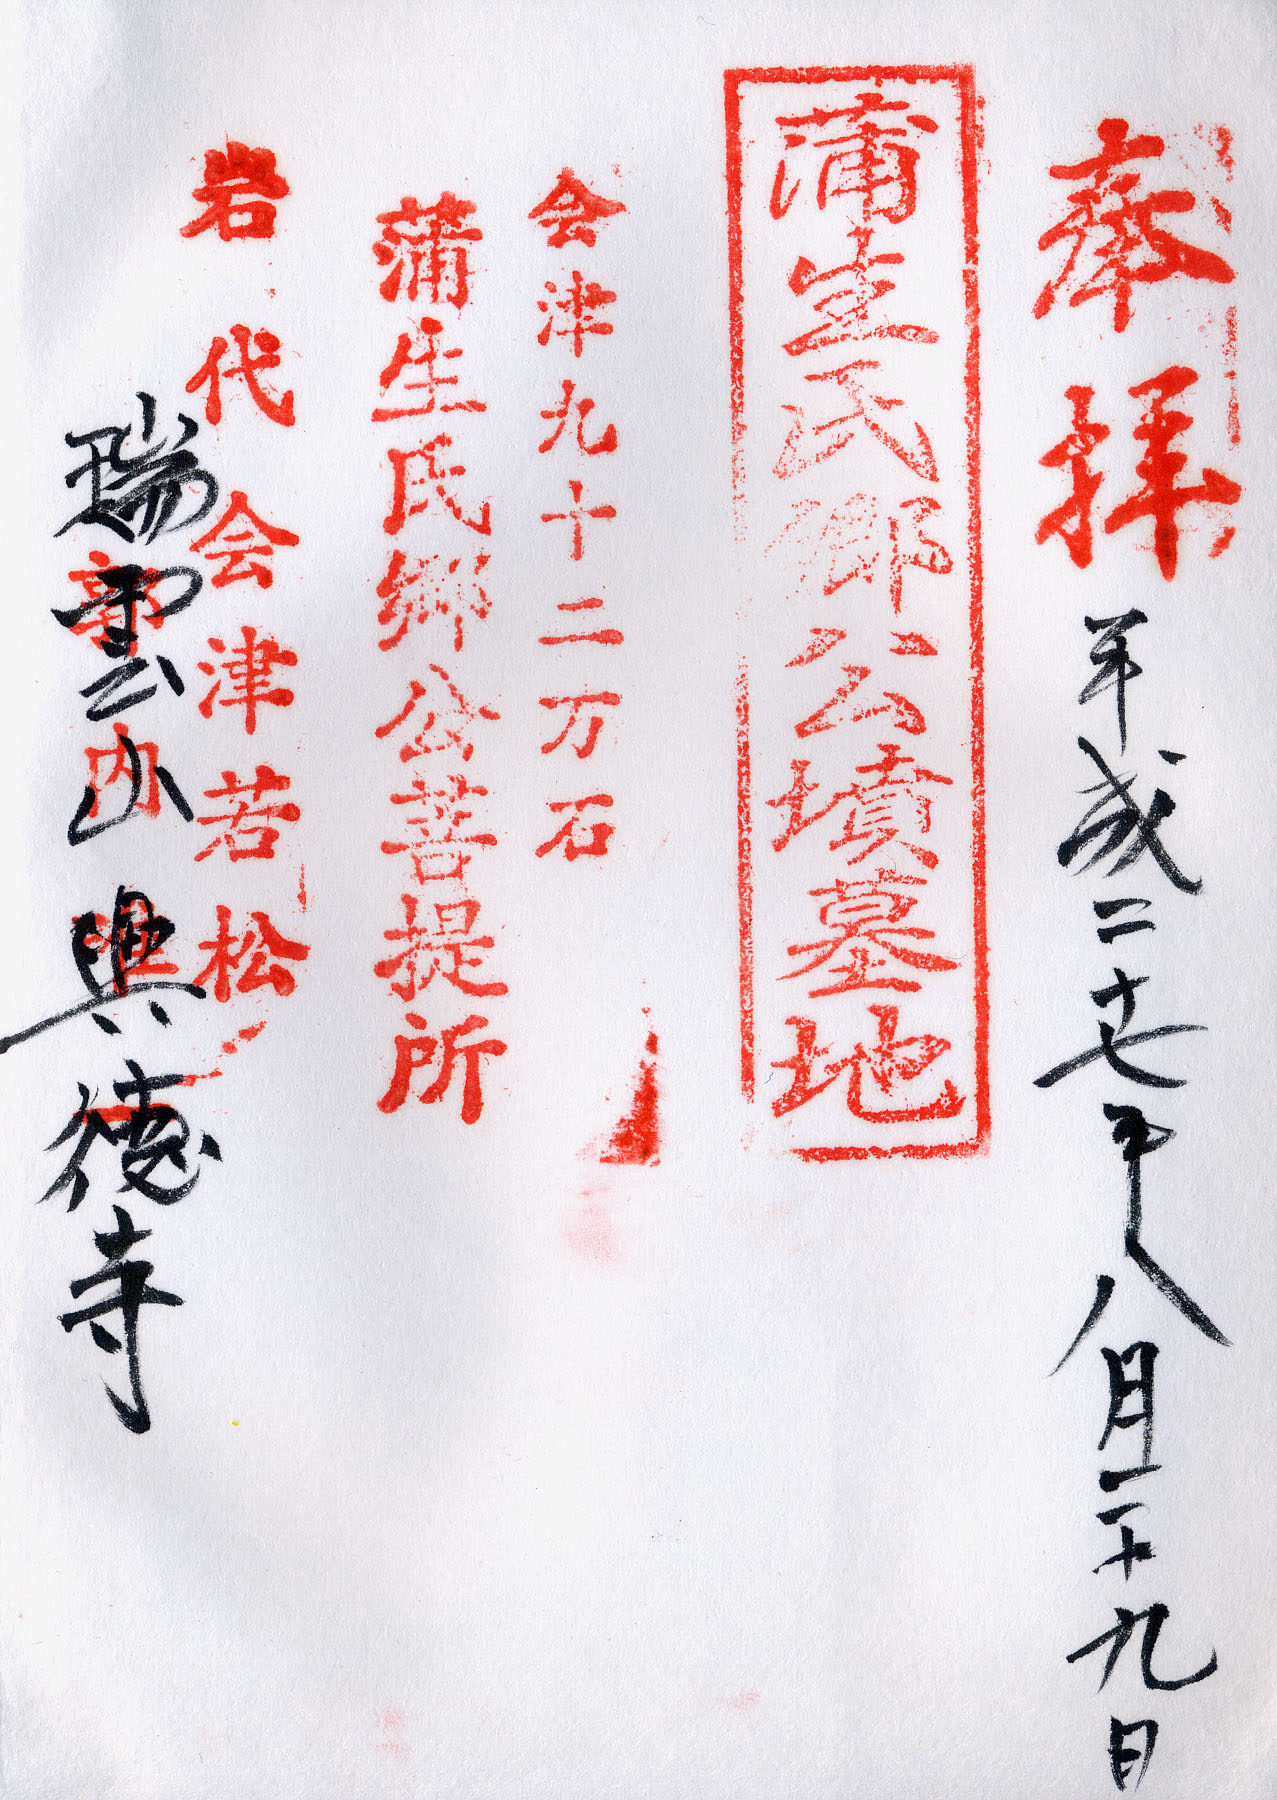 奉拝
平成二十七年八月二十九日
蒲生氏郷公墳墓地
会津九十二万石
蒲生氏郷公菩提所
岩代会津若松
郭内
瑞雲山興徳寺